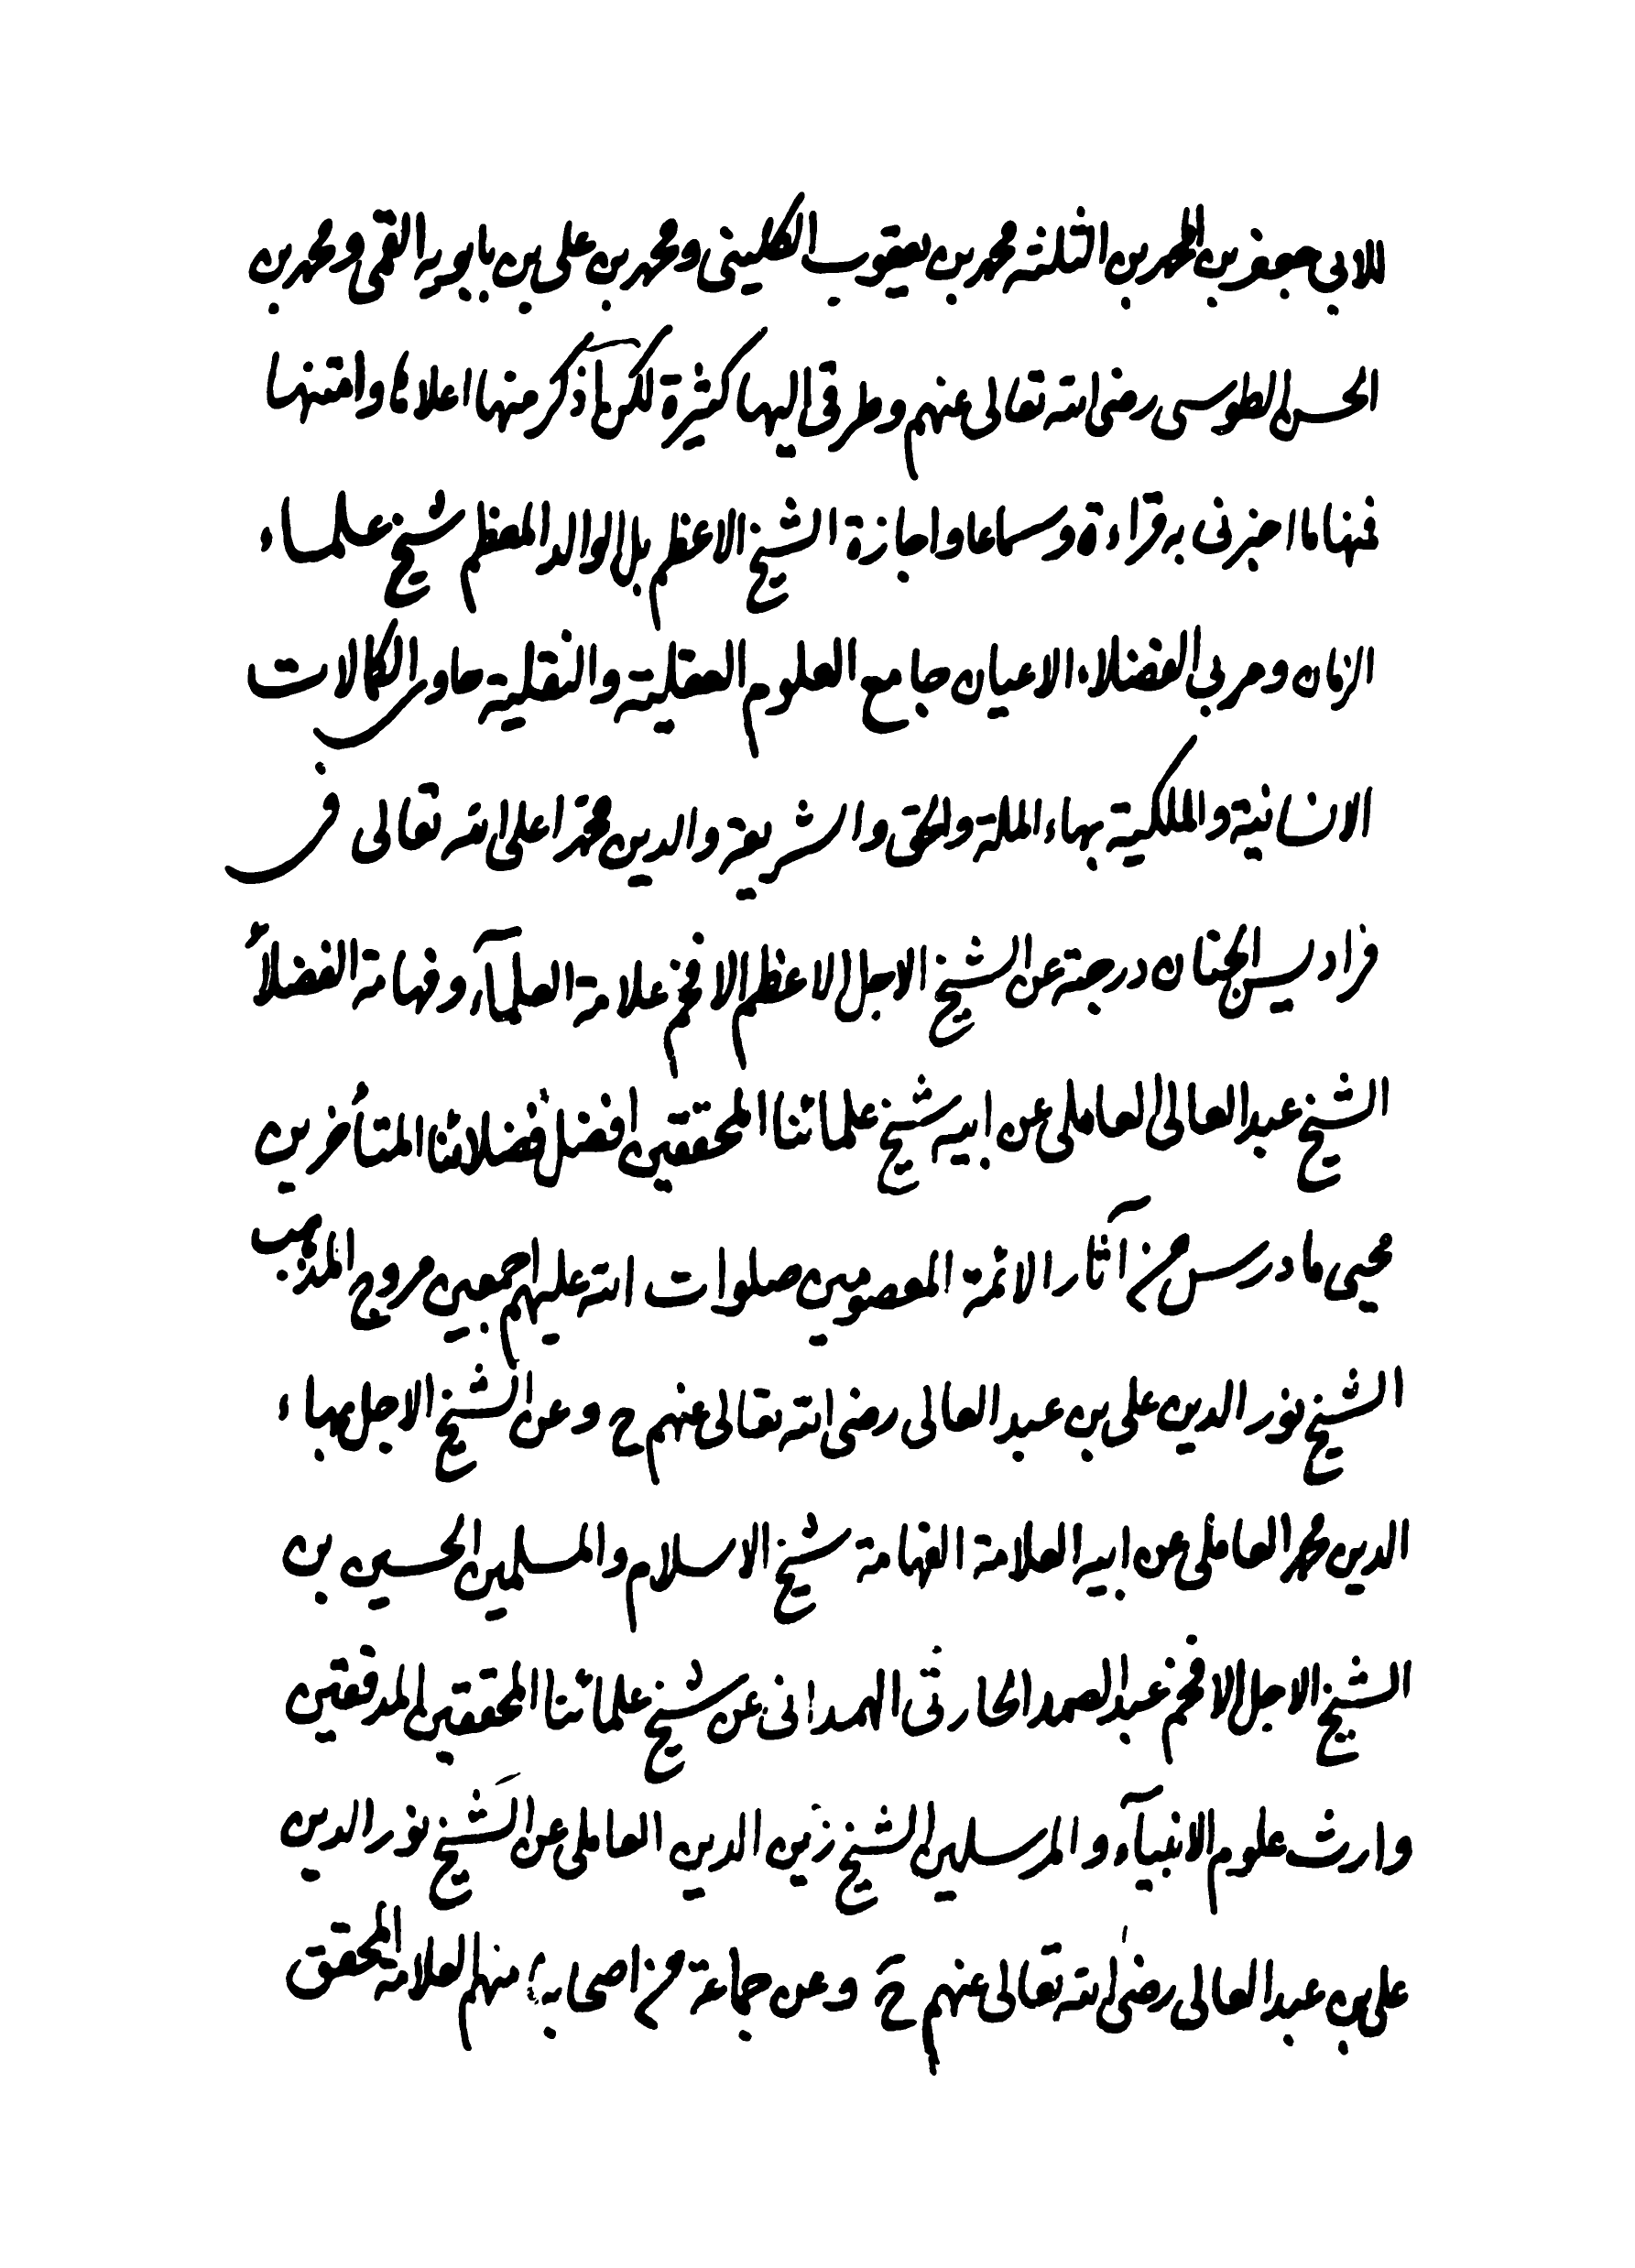 للابى جعفرين المحمدين الثلثه محمد بن يعقوب الكلينى ومحمد بن على بن بابويه القمى ومحمد بن
الحسن الطوسى رضى الله تعالى عنهم وطرقى اليها كثيرة لكن ما اذكر منها اعلاها وامتنها
فمنها ما اخبرنى به قراءة وسماعا واجازة الشيخ الاعظم بل الوالد المعظم شيخ علماء
الزمان ومربى الفضلاء الاعيان جامع العلوم العقلية والنقلية حاوى الكمالات
الانسانية والملكية بهاء الملة والحق والشريعة والدين محمد اعلى الله تعالى فى
فراديس الجنان درجته عن الشيخ الاجل الاعظم الافخم علامة العلمآء وفهامة الفضلاء
الشيخ عبد العالى العاملى عن ابيه شيخ علمائنا المحققين افضل فضلائنا المتأخرين
محيى ما درس من آثار الائمة المعصومين صلوات الله عليهم اجمعين مروج المذهب
الشيخ نور الدين على بن عبد العالى رضى الله تعالى عنهم ح وعن الشيخ الاجل بهاء
الدين محمد العاملى عن ابيه العلامة الفهامة شيخ الاسلام والمسلمين الحسين بن
الشيخ الاجل الافخم عبد الصمد الحارثى الهمدانى عن شيخ علمائنا المحققين المدققين
وارث علوم الانبيآء والمرسلين الشيخ زين الدين العاملى عن الشيخ نور الدين
على بن عبد العالى رضى الله تعالى عنهم ح وعن جماعة من اصحابه منهم العلامة المحقق